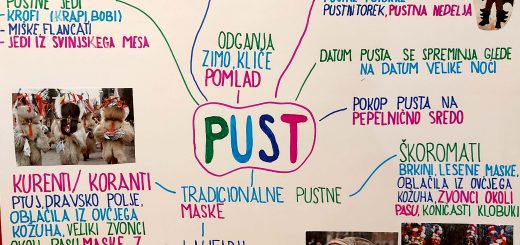 PUSTNE JEDI
- KROFI (KRAPI, BOBI)
- MIŠKE, FLANCATI
- JEDI IZ SVINJSKEGA MESA
PUSTNI TOREK, PUSTNA NEDELJA
ODGANJA
ZIMO, KLIČE
POMLAD
DATUM PUSTA SE SPREMINJA GLEDE
NA DATUM VELIKE NOČI
POKOP PUSTA NA
PEPELNIČNO SREDO
PUST
KURENTI/ KORANTI
PTUJ, DRAVSKO POLJE,
OBLAČILA IZ OVČJEGA
KOŽUHA, VELIKI ZVONCI
OKOLI PASU, MASKE Z
TRADICIONALNE PUSTNE
MASKE
LAUFARJI
ŠKOROMATI
BRKINI, LESENE MASKE,
OBLAČILA IZ OVČJEGA
KOŽUHA, ZVONCI OKOLI
PASU, KONIČASTI KLOBUKI